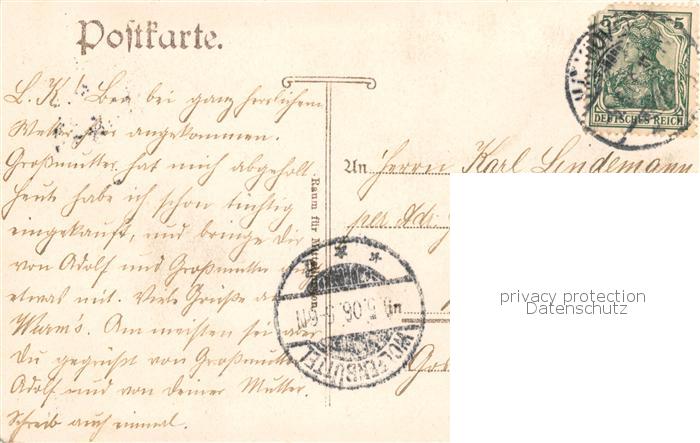 Postkarte.
5 5
DEUTSCHES REICH
L. K.! Bin bei ganz herrlichem
Wetter hier angekommen.
Großmutter hat mich abgeholt
heute habe ich schon tüchtig
eingekauft, und bringe dir
von Adolf und Großmutter auch
etwas mit. Viele Grüße an
Wurm's. Am meisten sei aber
Du gegrüßt von Großmutter
Adolf und von deiner Mutter.
Schreib auch einmal.
Raum für
An Herrn Karl Lindemann
per Adr.
WOLFENBÜTTEL
5.06. 5-6N
privacy protection
Datenschutz